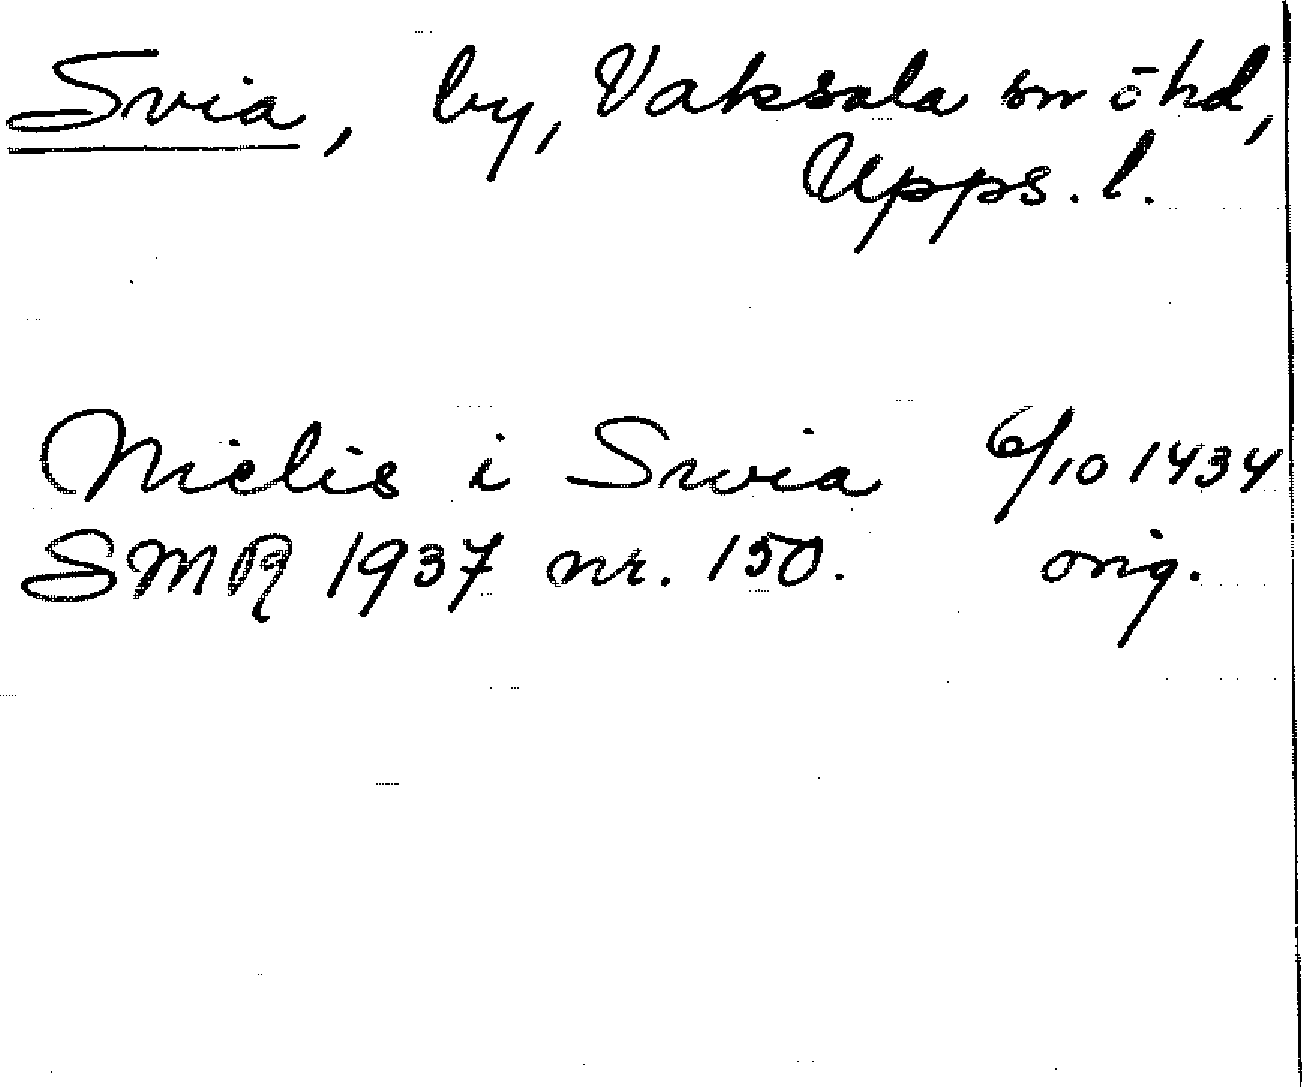 Svia, by, Vaksala sn ō hd,
Upps. l.
Nielis i Swia 6/10 1434
SMR 1937 nr. 150. orig.